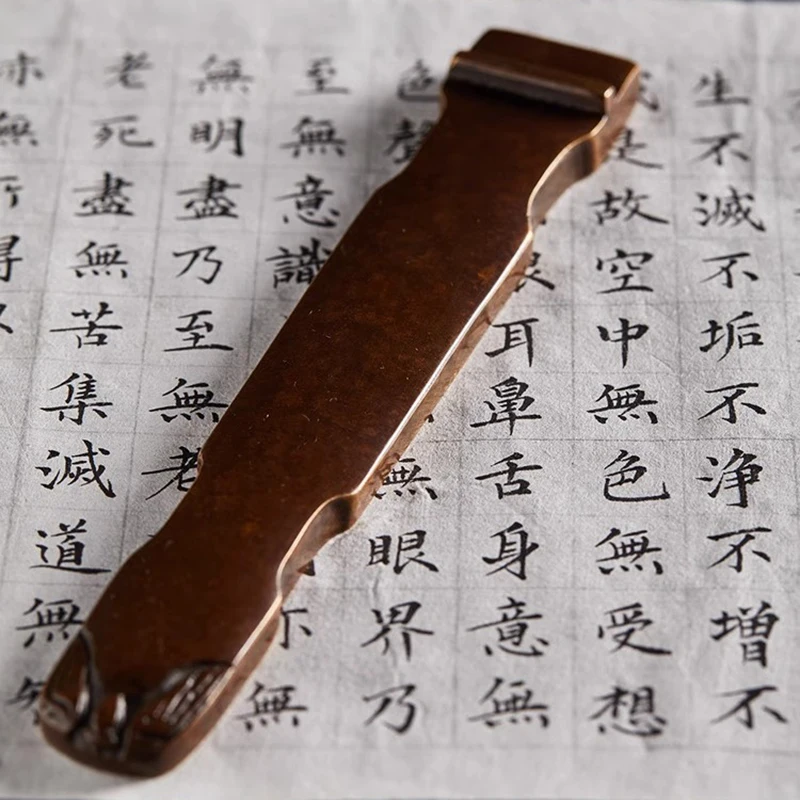 生不滅不垢不浄不增不
是故空中無色無受想
耳鼻舌身意無
色聲無眼界乃
至無意識亦無
無明盡乃至無老
老死盡無苦集滅道無
無得